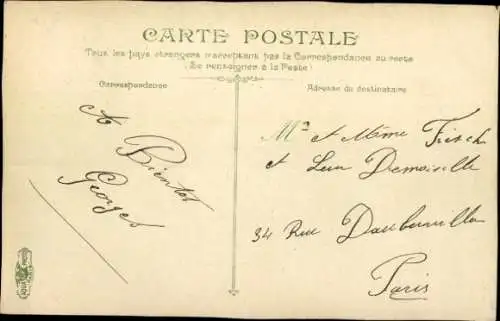 CARTE POSTALE
Tous les pays étrangers n'acceptant pas la Correspondance au recto
(Se renseigner à la Poste)
Correspondance
Adresse du destinataire
A Bientot
Georges
Mr et Mme Frisch
et Leur Demoiselle
34 Rue Daubervilliers
Paris